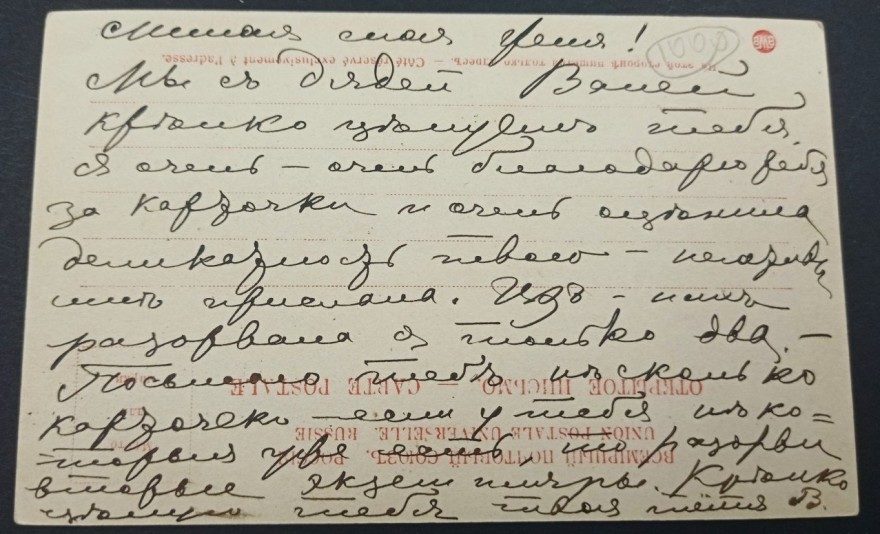 Милая моя Геня!
Мы съ дядей Ваней
крѣпко цѣлуемъ тебя.
Я очень – очень благодарю тебя
за карточки и очень оцѣнила
деликатность твою –
прислала. Изъ – нихъ
разорвала я только два. –
Посылаю тебѣ нѣсколько
карточекъ – если у тебя нѣко=
торыя уже есть, то разорви
вторые экземпляры. Крѣпко
цѣлую тебя твоя тётя В.
1000
На этой сторонѣ пишется только адресъ. — Côté réservé exclusivement à l'adresse.
ОТКРЫТОЕ ПИСЬМО. — CARTE POSTALE
ВСЕМІРНЫЙ ПОЧТОВЫЙ СОЮЗЪ. РОССІЯ.
UNION POSTALE UNIVERSELLE. RUSSIE